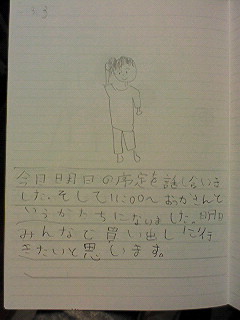 今日明日の予定を話し合いま
した。そして11:00〜おかさんと
いうかたちになりました。明日
みんなで買い出しに行
きたいと思います。